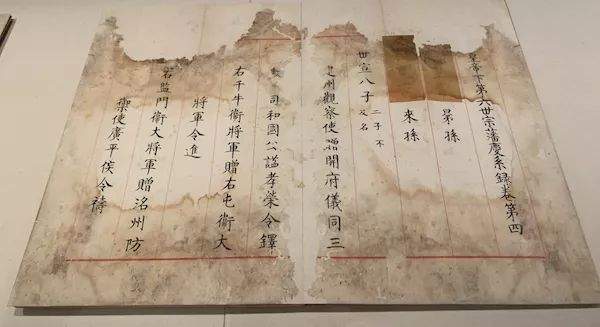 皇帝下第六世宗藩慶系錄卷第四
晜孫
來孫
世宣八子
二子不
及名
州觀察使贈開府儀同三
司和國公謚孝榮令鐸
右千牛衛將軍贈右屯衛大
將軍令進
右監門衛大將軍贈洺州防
禦使廣平侯令禱